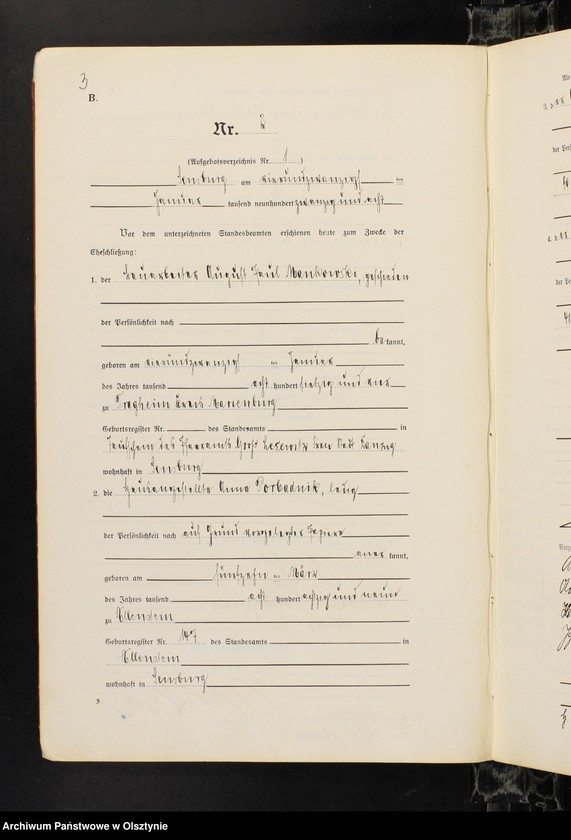 3
B.
Nr. 2
(Aufgebotsverzeichnis Nr. 1)
Sensburg am vierundzwanzigsten
Januar tausend neunhundert zwanzig und acht
Vor dem unterzeichneten Standesbeamten erschienen heute zum Zwecke der
Eheschließung:
1. der Bauarbeiter August Paul Mankowski, geschieden
der Persönlichkeit nach
be kannt,
geboren am vierundzwanzigsten Januar
des Jahres tausend acht hundert siebzig und vier
zu Tragheim Kreis Marienburg
Geburtsregister Nr. des Standesamts in
Taufschein des Pfarramts Groß Lesewitz Danzig
wohnhaft in Sensburg
2. die Hausangestellte Anna Porbadnik, ledig
der Persönlichkeit nach auf Grund vorgelegter Papiere
aner kannt,
geboren am fünfzehnten März
des Jahres tausend acht hundert achtzig und neun
zu Allenstein
Geburtsregister Nr. 147 des Standesamts in
Allenstein
wohnhaft in Sensburg
3
Archiwum Państwowe w Olsztynie